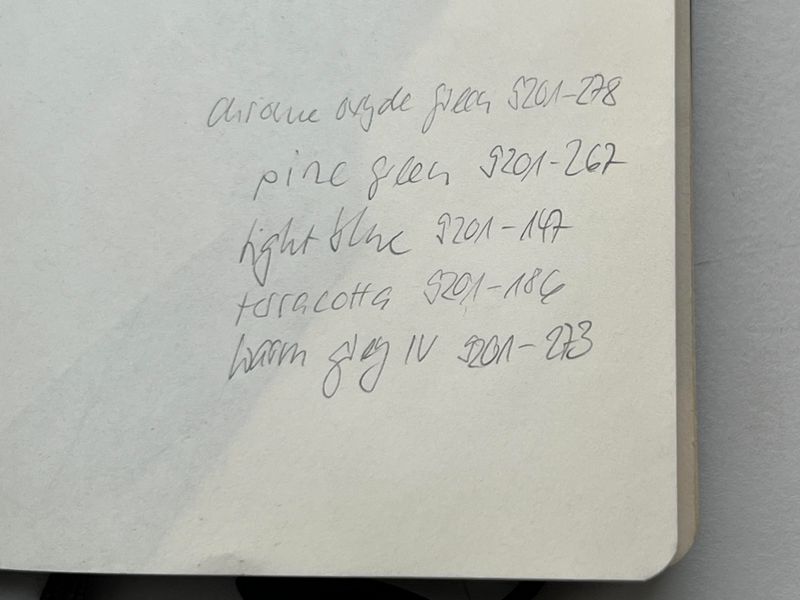 chrome oxyde green 9201-278
pine green 9201-267
light blue 9201-147
terracotta 9201-186
warm grey IV 9201-273